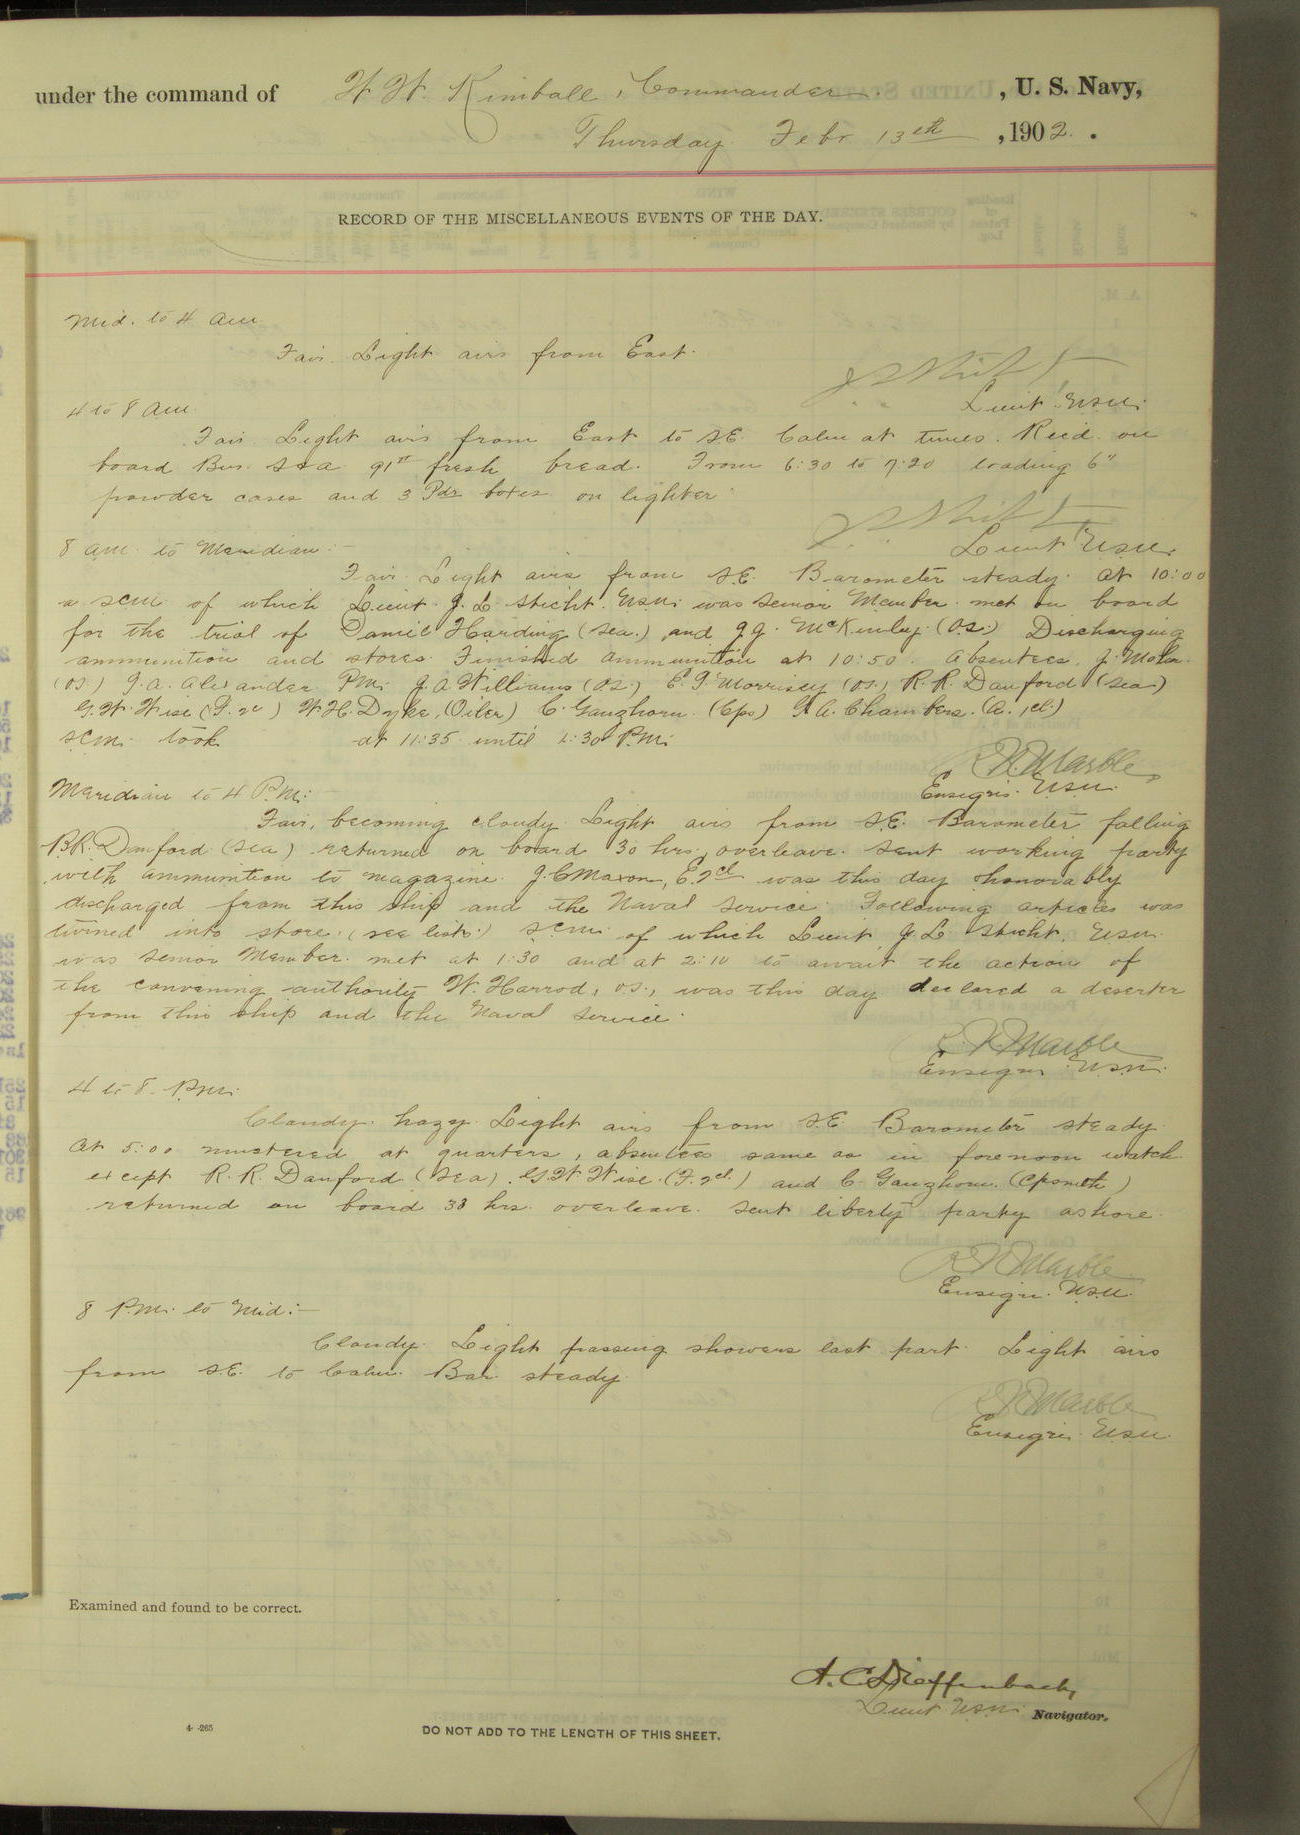 under the command of W. W. Kimball, Commander. , U. S. Navy,
Thursday Febr 13th , 1902.
RECORD OF THE MISCELLANEOUS EVENTS OF THE DAY.
Mid. to 4 am
Fair. Light airs from East.
Lieut. U.S.N.
4 to 8 am.
Fair. Light airs from East to S.E. Calm at times. Rec'd. on
board fresh bread. From 6:30 to 7:20 loading 6"
powder cases and 3 Pdr boxes on lighter.
Lieut U.S.N.
8 am. to Meridian:-
Fair. Light airs from S.E. Barometer steady. At 10:00
a SCM of which Lieut. J. L. Sticht. U.S.N. was Senior Member. met on board
for the trial of Daniel Harding (Sea.) and J. J. McKinley. (O.S.) Discharging
ammunition and stores. Finished ammunition at 10:50. Absentees. J.
(O.S.) J. A. Alexander P.M. J. A. Williams (O.S.) E. F. Morrisey (O.S.) R. R. Danford (Sea)
G. W. Wise (F. 2c) W. H. Dyke, (Oiler) C. Ganzhorn. (Cps) G. A. Chambers.
SCM. took at 11:35 until 1:30 P.M.
R. N. Marble,
Ensign. U.S.N.
Meridian to 4 P.M.:
Fair, becoming cloudy. Light airs from S.E. Barometer falling
R. R. Danford (Sea) returned on board 30 hrs. overleave. Sent working party
with ammunition to magazine. J. C. Maxon, E. 2cl was this day honorably
discharged from this ship and the Naval Service. Following articles was
turned into store. (see list.) SCM. of which Lieut. J. L. Sticht. U.S.N.
was Senior Member. met at 1:30 and at 2:10 to await the action of
the convening authority W. Harrod, O.S., was this day declared a deserter
from this ship and the Naval Service.
R. N. Marble
Ensign U.S.N.
4 to 8 P.M.
Cloudy. hazy. Light airs from S.E. Barometer steady.
At 5:00 mustered at quarters, absentees same as in forenoon watch
except R. R. Danford (Sea). G. W. Wise. (F. 2cl.) and C. Ganzhorn. (Cpsmith)
returned on board 33 hrs. overleave. Sent liberty party ashore.
R. N. Marble
Ensign. U.S.N.
8 P.M. to Mid:-
Cloudy. Light passing showers last part. Light airs
from S.E. to Calm. Bar. steady.
R. N. Marble
Ensign. U.S.N.
Examined and found to be correct.
A. C. Dieffenbach,
Lieut U.S.N. Navigator.
4-265
DO NOT ADD TO THE LENGTH OF THIS SHEET.